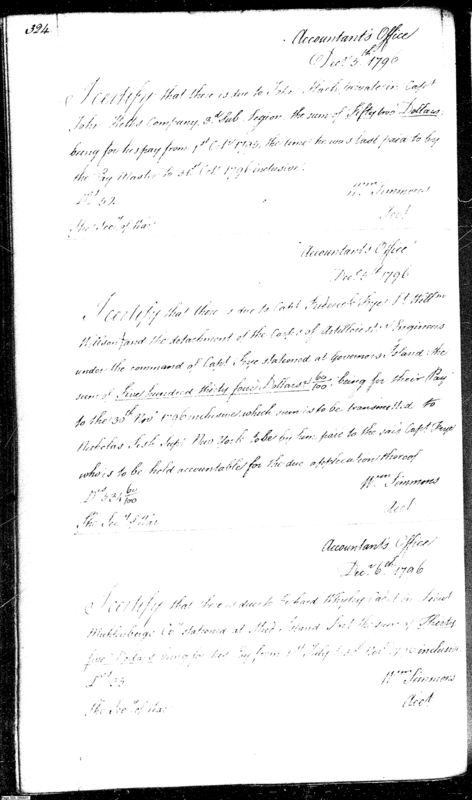 324
Accountant's Office
Decr. 5th. 1796
I certify that there is due to John Black private in Capt
John Company, 3d Sub Legion, the sum of Fifty two Dollars,
being for his pay from 1st Octr 1795, the time he was last paid to by
the Pay Master to 31st Octr 1796 inclusive.
Drs 52.
Wm Simmons
Acct
The Secy. of War
Accountant's Office
Decr. 5th 1796
I certify that there is due to Capt Frederick Frye Lt Willm
Wilson and the detachment of the Corps of Artillerists & Engineers
under the command of Capt Frye stationed at Governors Island the
sum of Five hundred thirty four Dollars 60/100, being for their Pay
to the 30th Novr 1796 inclusive, which sum is to be transmitted to
Nicholas Fish Supr. New York to be by him paid to the said Capt Frye
who is to be held accountable for the due application thereof
Drs 534 60/100
Wm Simmons
Acct
The Secy of War
Accountant's Office
Decr. 6th. 1796
I certify that there is due to in Lieut
Muhlenbergs Co. stationed at Island the sum of Thirty
five being for his Pay from 1st July inclusive
Drs 35
Wm Simmons
Acct
The Secy of War